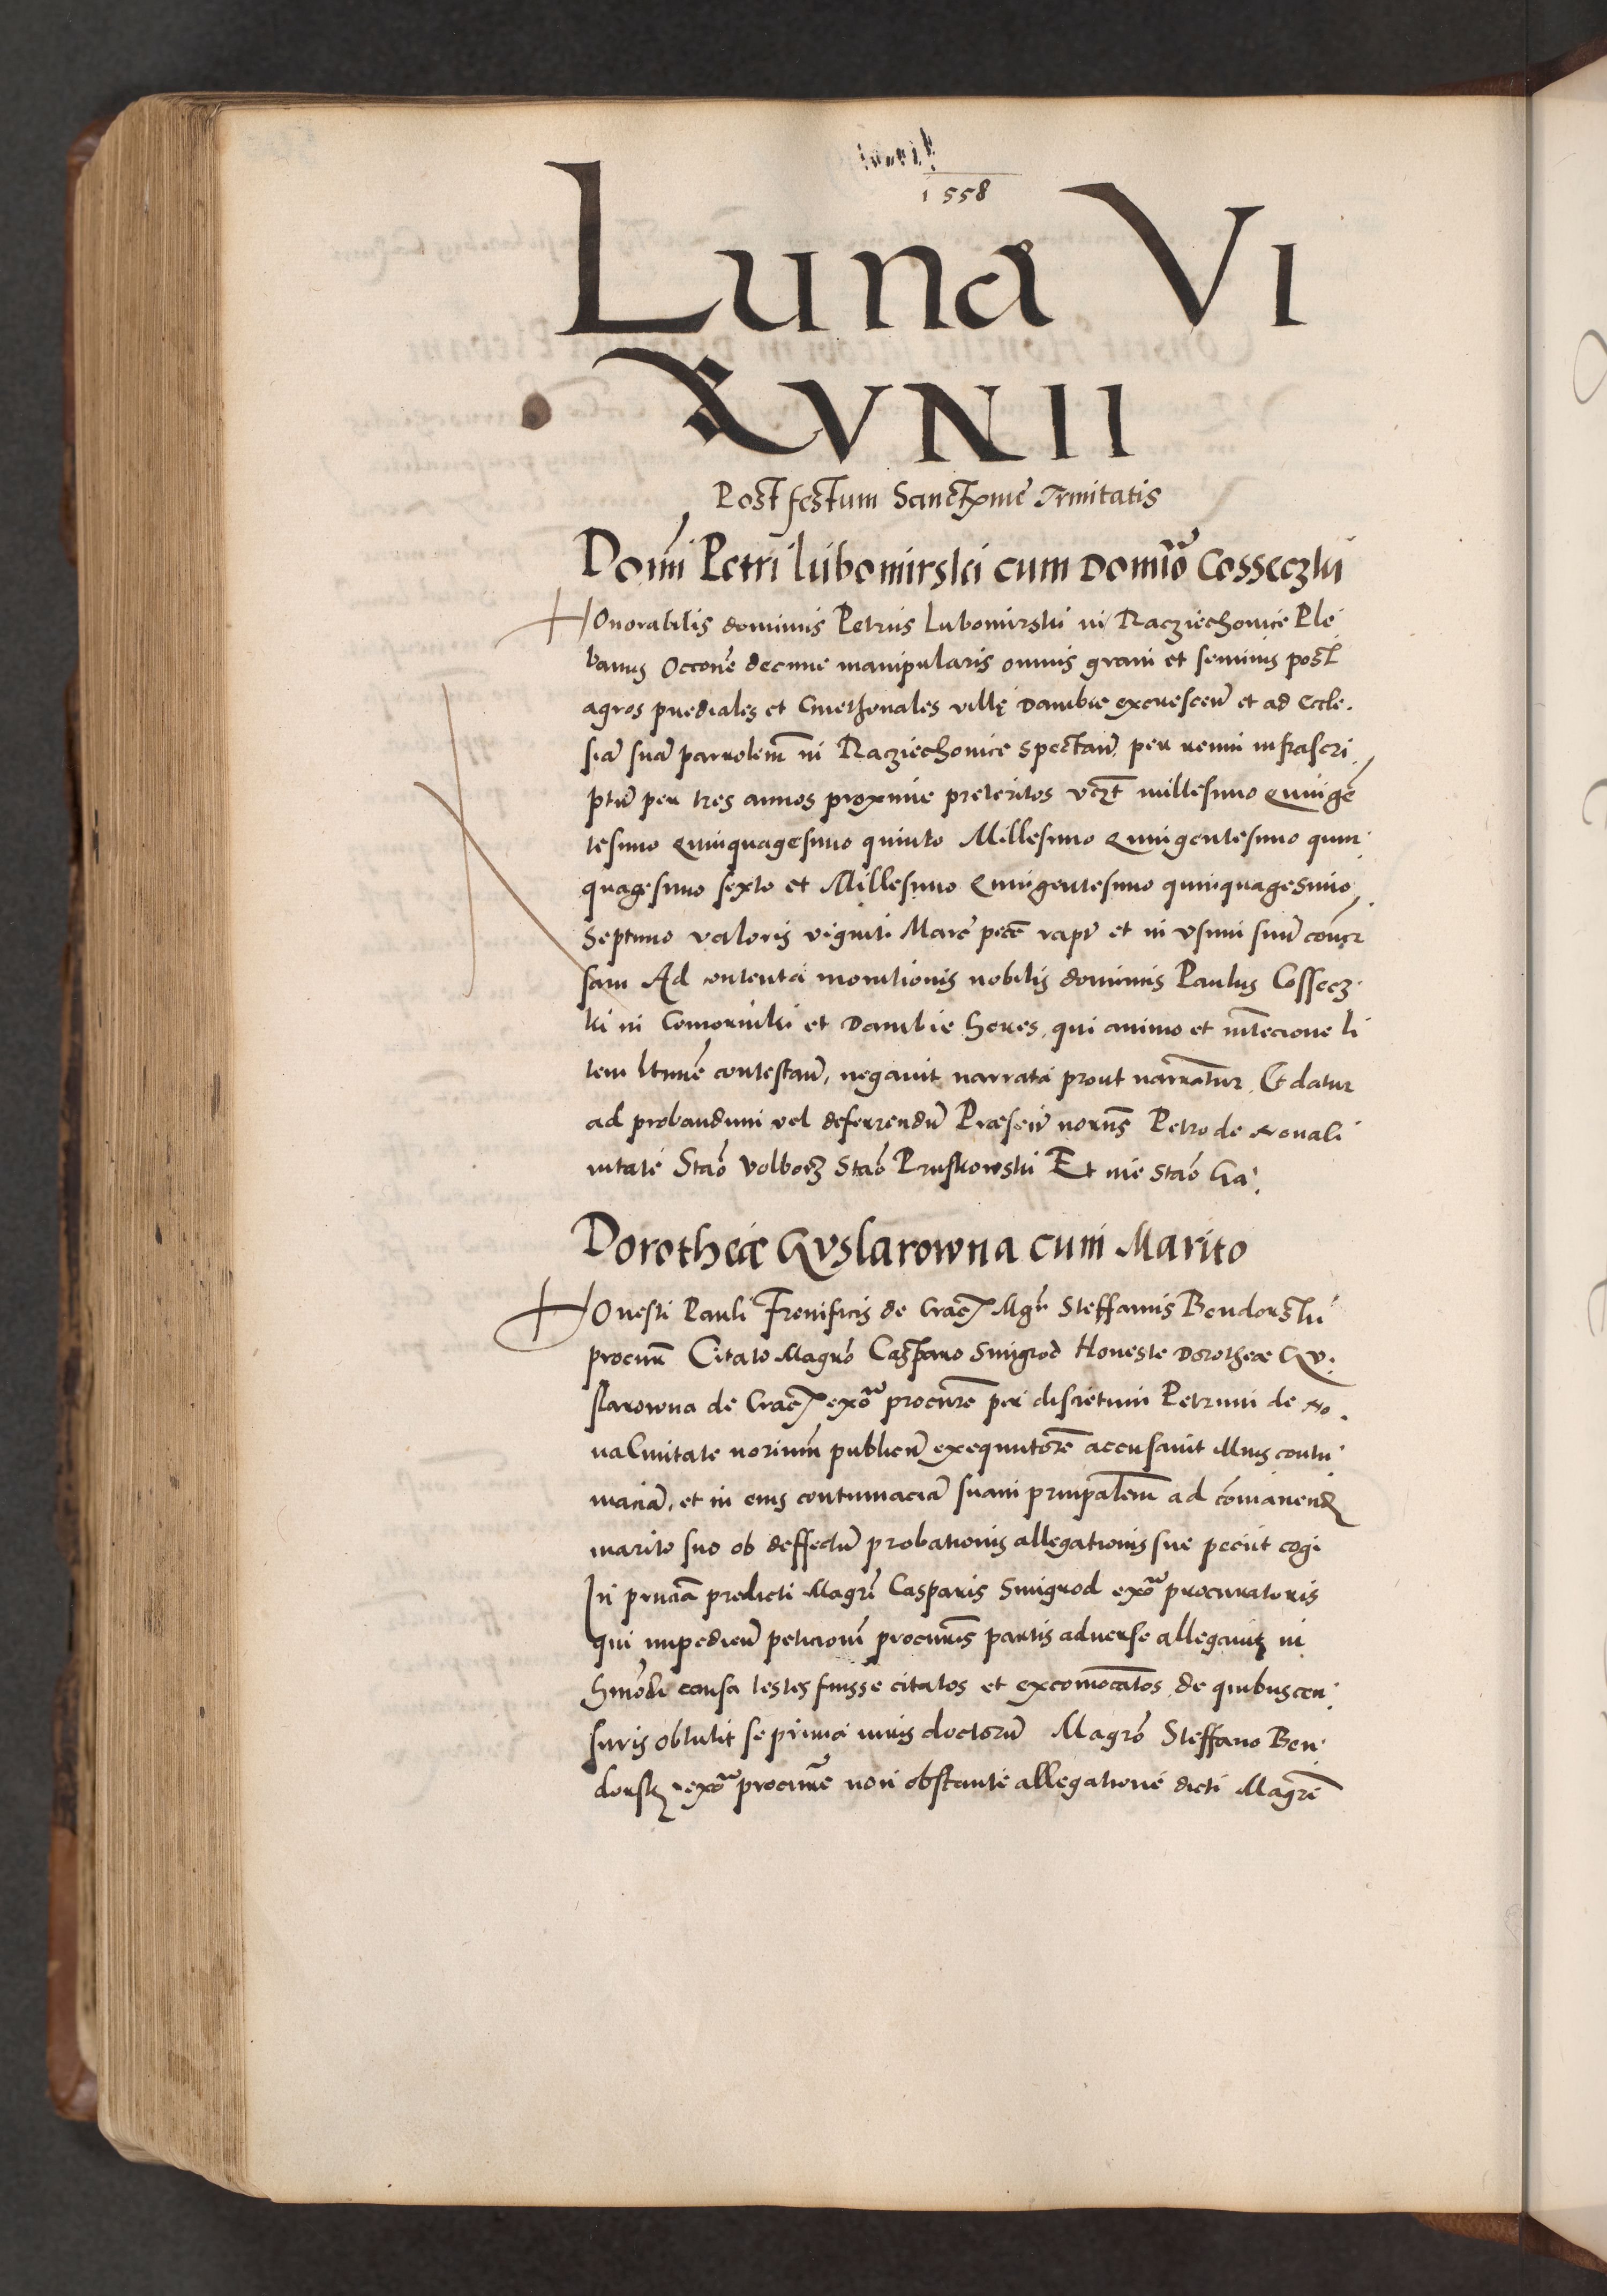 1558
Luna VI
XVNII
Post festum Sanctxme Trinitatis
Domi Petri lubomirski cum Domio Cosseczki
HOnorabilis dominus Petrus Lubomirski in Racziechouice Ple
banus Occone decime manipularis omnis grani et seminis post
agros prediales et Cmethonales ville Dambie excrescen et ad Eccle.
sia sua parrolem in Racziechouice spectan, per reum infrascri.
ptu per tres annos proxime preteritos vczt millesimo Quinge
tesimo Quinquagesimo quinto Millesimo Quingentesimo quin
quagesimo sexto et Millesimo Quingentesimo quinquagesimo.
Septimo valoris viginti Marc pecc rapt et in vsum suu conuer
sam Ad contenta monitionis nobilis dominus Paulus Cossecz
ki in Comorniki et Dambie heres, qui animo et intecione li
tem ltime contestan, negauit narrata prout narratur. Et datur
ad probandum vel deferrendu Præsen norus Petro de Nouali
uitate Stao Volborz Stao Pruskowski Et me Stao Ga.
Dorotheæ Kuslarowna cum Marito
HOnesti Pauli Frenificis de Crac Mgr Steffanus Bendonski
procur Citato Magro Casparo Smigrod Honeste Dorotheæ Ku.
slarowna de Crac exoa procure per discretum Petrum de No.
uaCiuitate norium publicu exequutore accusauit illius contu
macia, et in eius contumacia suam prinpalem ad comanend
marito suo ob deffectu probationis allegationis sue peciit cogi
In pncia predicti Magri Casparis Smigrod exoa procuratoris
qui impedien peticioni procuris partis aduerse allegauit in
hmodi causa testes fuisse citatos et excomocatos de quibus cen.
suris obtulit se prima iuris doctoru Magro Steffano Ben
donski exoa procure non obstante allegatione dicti Magri